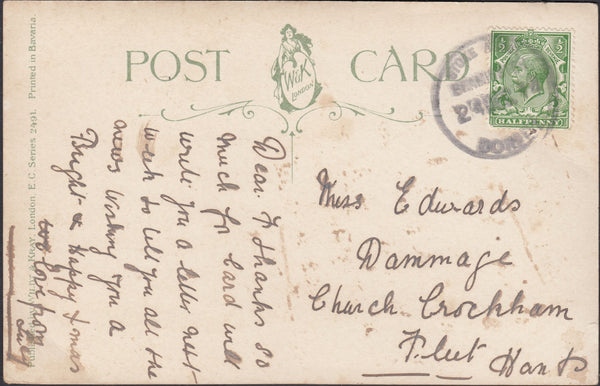 POST CARD
W&K
LONDON
HALFPENNY
Dear F thanks so
much for Card will
write you a letter next
week to tell you all the
news wishing you a
Bright & Happy Xmas
with love from
Miss Edwards
Dammage
Church Crockham
Fleet Hants
London, E.C. Series 2491. Printed in Bavaria.